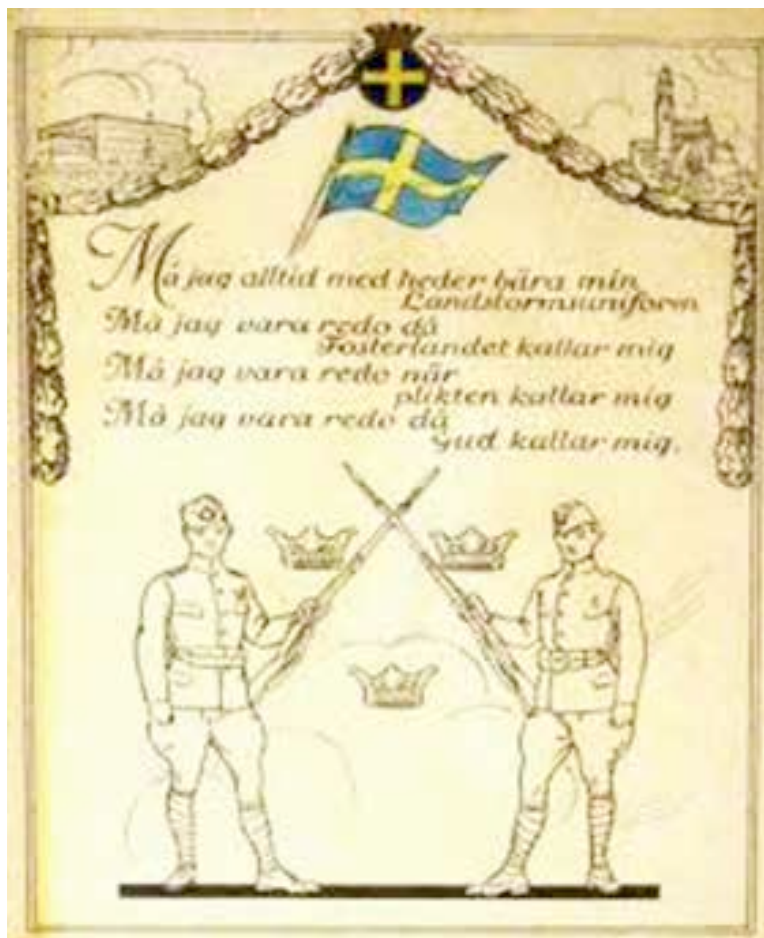 Må jag alltid med heder bära min
Landstormsuniform
Må jag vara redo då
Fosterlandet kallar mig
Må jag vara redo när
plikten kallar mig
Må jag vara redo då
Gud kallar mig.